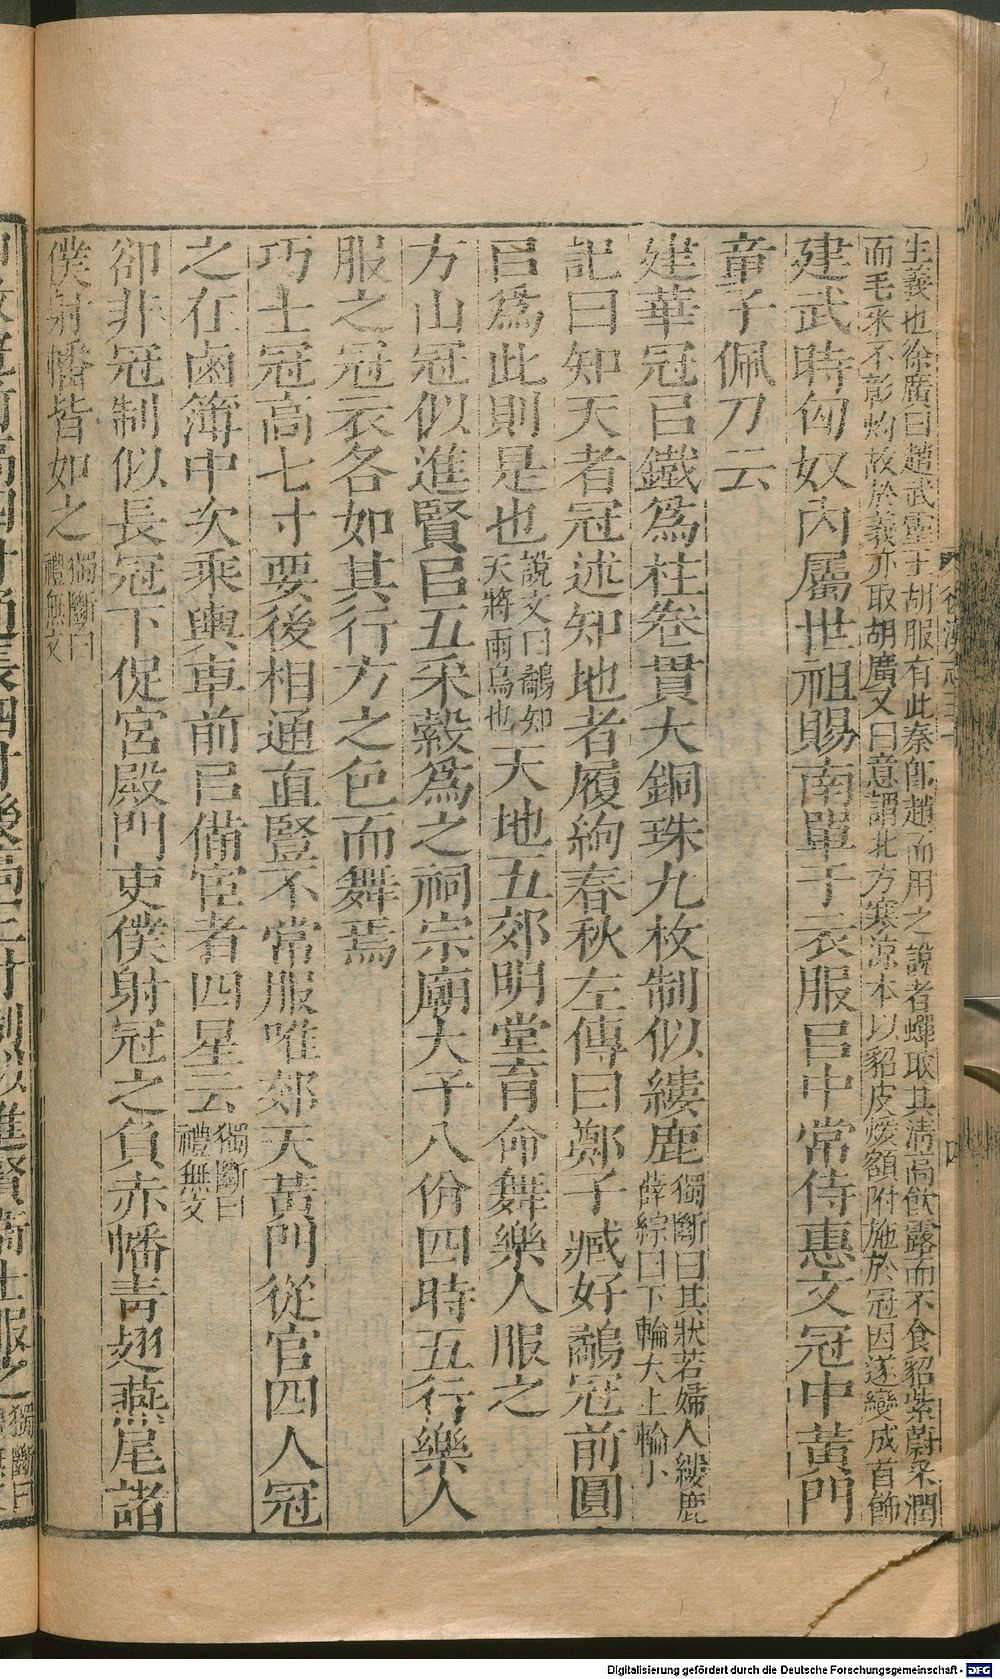 生義也徐廣曰趙武靈王胡服有此秦卽趙而用之說者蟬取其淸高飮露而不食貂紫蔚采潤
而毛米不彰灼故於義亦取胡廣又曰意謂北方寒涼本以貂皮煖額附施於冠因遂變成首飾
建武時匈奴內屬世祖賜南單于衣服㠯中常侍惠文冠中黃門
童子佩刀云
建華冠㠯鐵爲柱卷貫大銅珠九枚制似縷鹿獨斷曰其狀若婦人縷鹿
薛綜曰下輪大上輪小
記曰知天者冠述知地者履絇春秋左傳曰鄭子臧好鷸冠前圓
㠯爲此則是也說文曰鷸知
天將雨鳥也天地五郊明堂育命舞樂人服之
方山冠似進賢㠯五采縠爲之祠宗廟大予八佾四時五行樂人
服之冠衣各如其行方之色而舞焉
巧士冠高七寸要後相通直豎不常服唯郊天黃門從官四人冠
之在鹵簿中次乘輿車前㠯備宦者四星云獨斷曰
禮無文
卻非冠制似長冠下促宮殿門吏僕射冠之負赤幡青翅燕尾諸
僕射幡皆如之獨斷曰
禮無文
Digitalisierung gefördert durch die Deutsche Forschungsgemeinschaft - DFG